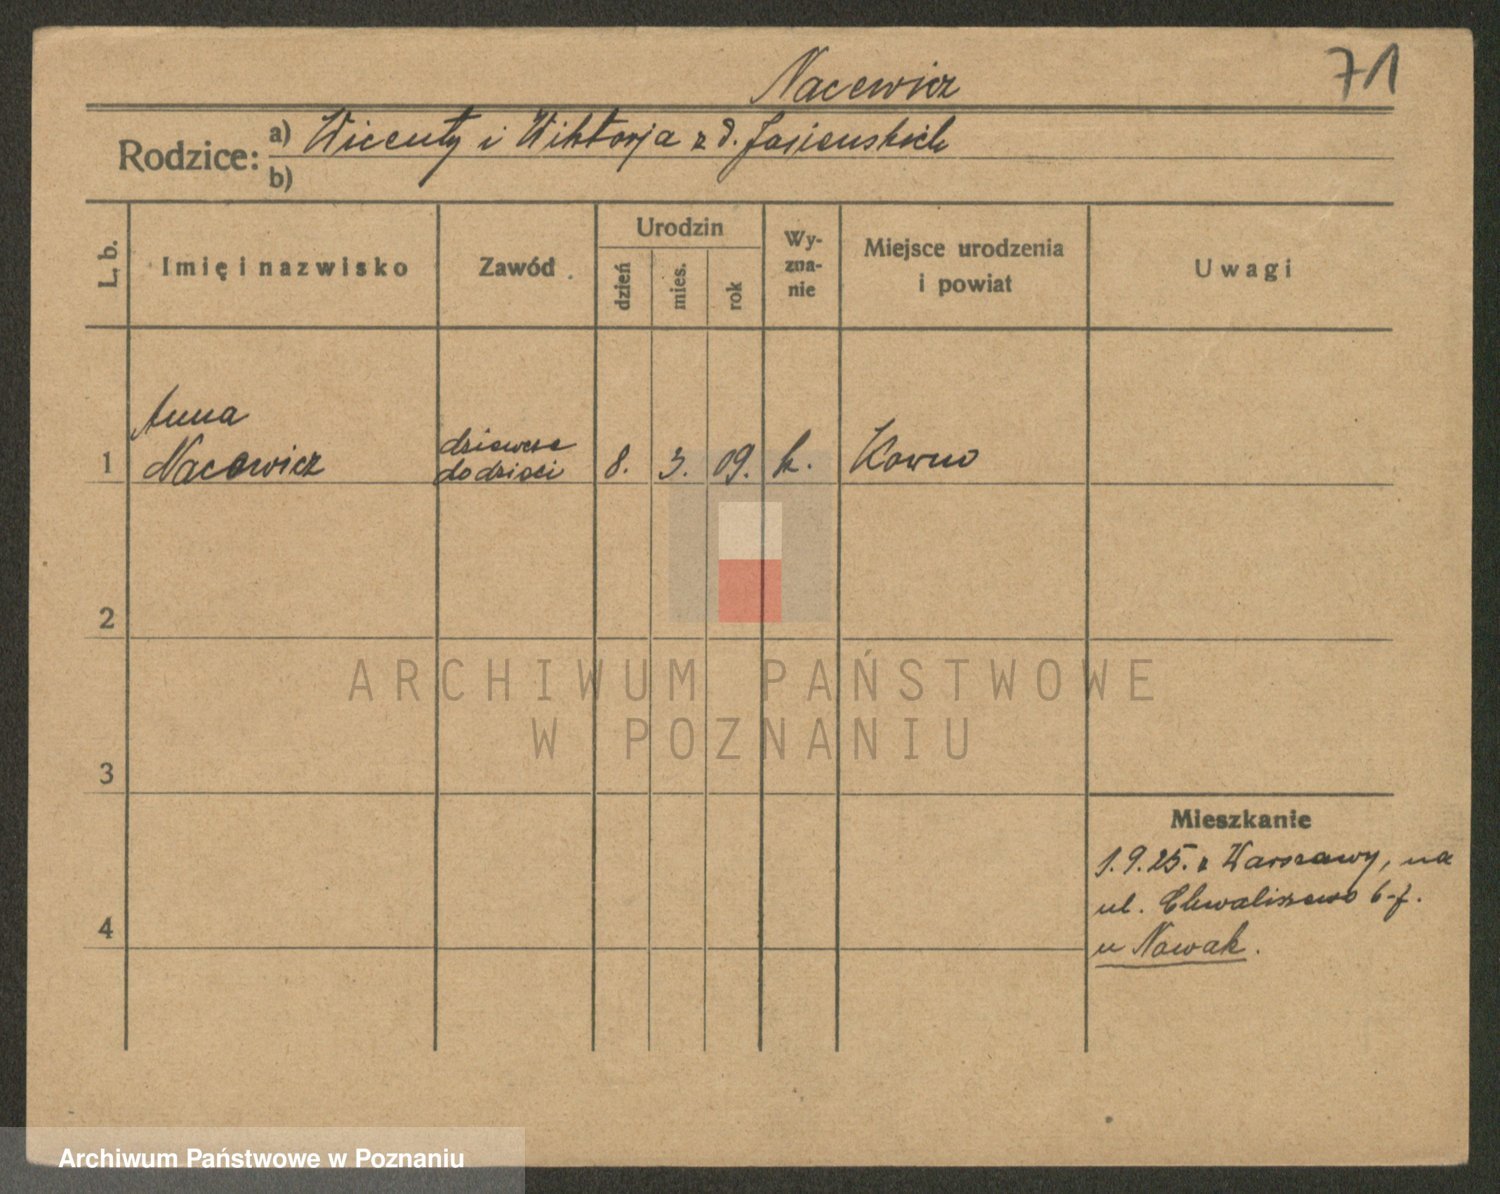 71
Nacewicz
Rodzice: a) Wicenty i Wiktorja z d. Jasieńskich
b)
L. b.
Imię i nazwisko
Zawód
Urodzin
dzień
mies.
rok
Wy-
zna-
nie
Miejsce urodzenia
i powiat
Uwagi
Anna
1 Nacewicz
dziewcz
do dzieci
8. 3. 09. k. Kowno
2
3
4
Mieszkanie
1.9.25. z Warszawy, na
ul. Chwaliszewo 6-7.
u Nowak.
ARCHIWUM PAŃSTWOWE
W POZNANIU
Archiwum Państwowe w Poznaniu